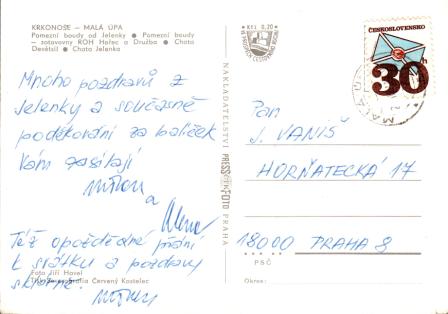 KRKONOŠE — MALÁ ÚPA
Pomezní boudy od Jelenky • Pomezní boudy
— zotavovny ROH Hořec a Družba • Chata
Desítsil • Chata Jelenka
Mnoho pozdravů z
Jelenky a současně
poděkování za balíček
Vám zasílají
a Alena
Též opožděné přání
k svátku a pozdravy
Foto Jiří Havel
Červený Kostelec
NAKLADATELSTVÍ PRESSFOTO PRAHA
Kčs 0,20
ČESKOSLOVENSKO
30h
Pan
J. VANIŠ
HORŇATECKÁ 17
18000 PRAHA 8
PSČ
Okres: